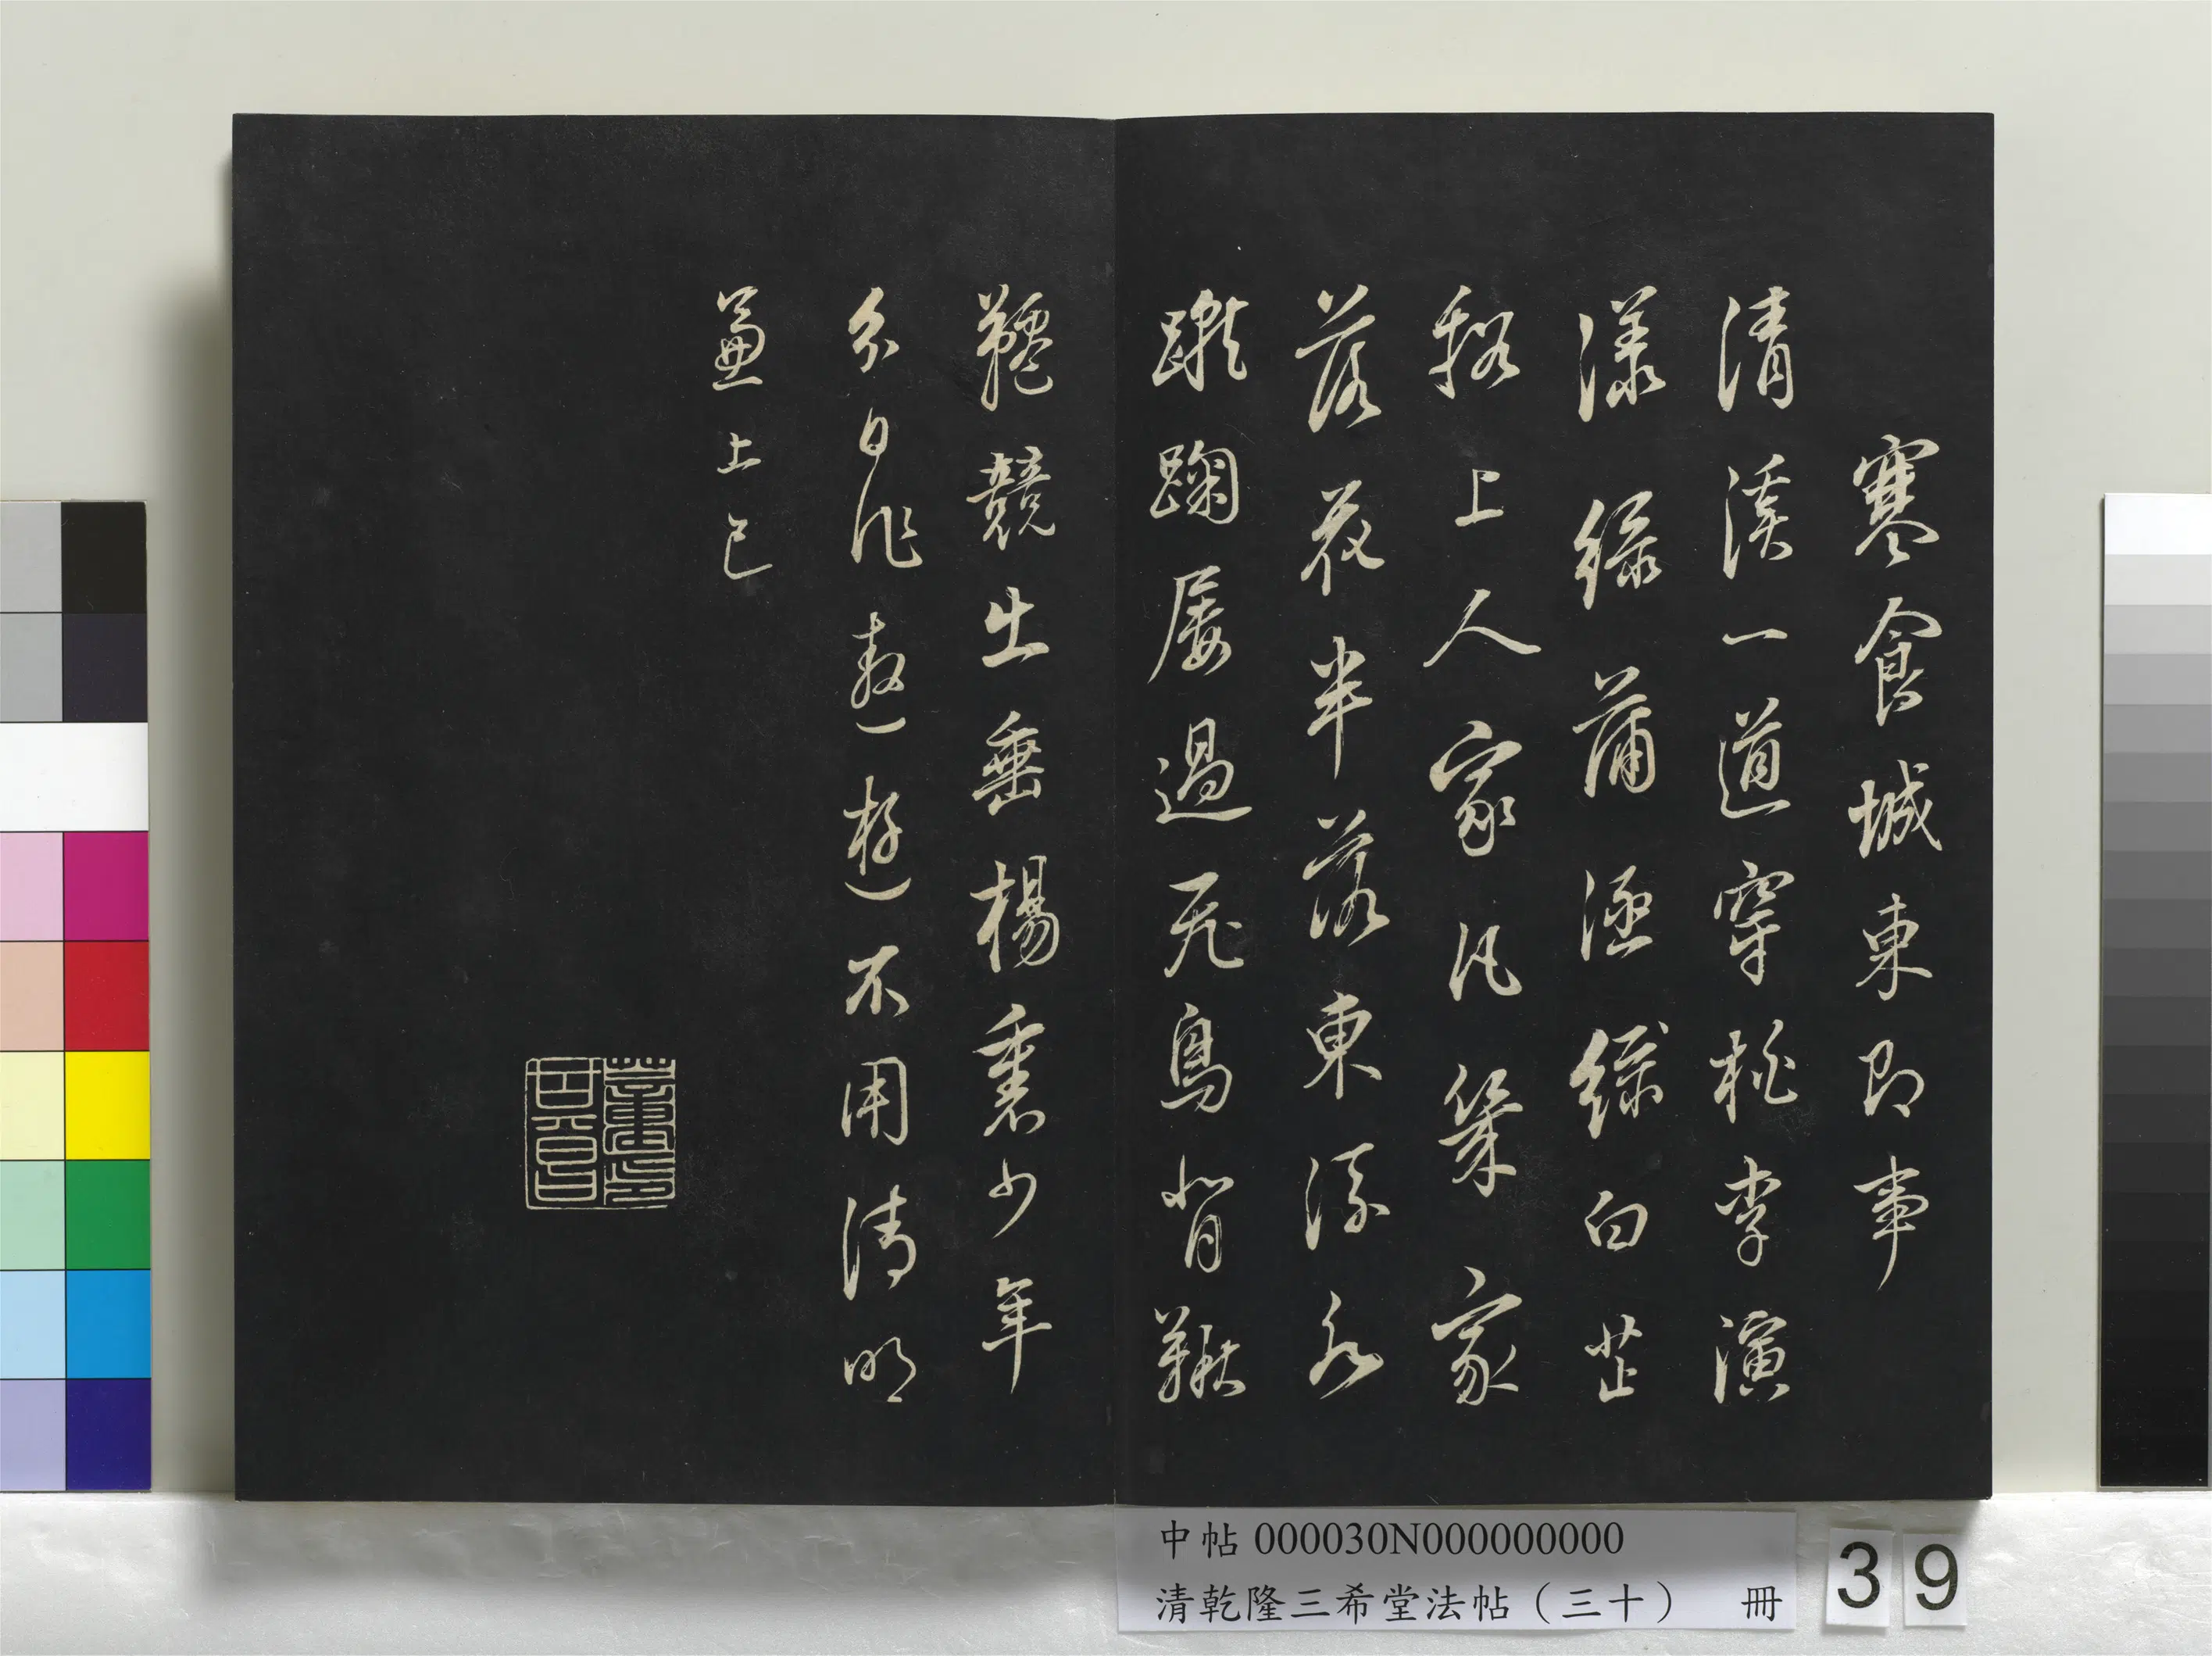 寒食城東即事
清溪一道穿桃李演
漾綠蒲涵綠白芷
谿上人家凡幾家
落花半落東流水
蹴踘屢過飛鳥背鞦
韆競出垂楊裏少年
分日作遨遊不用清明
兼上巳
中帖 000030N000000000
清乾隆三希堂法帖（三十） 冊
39